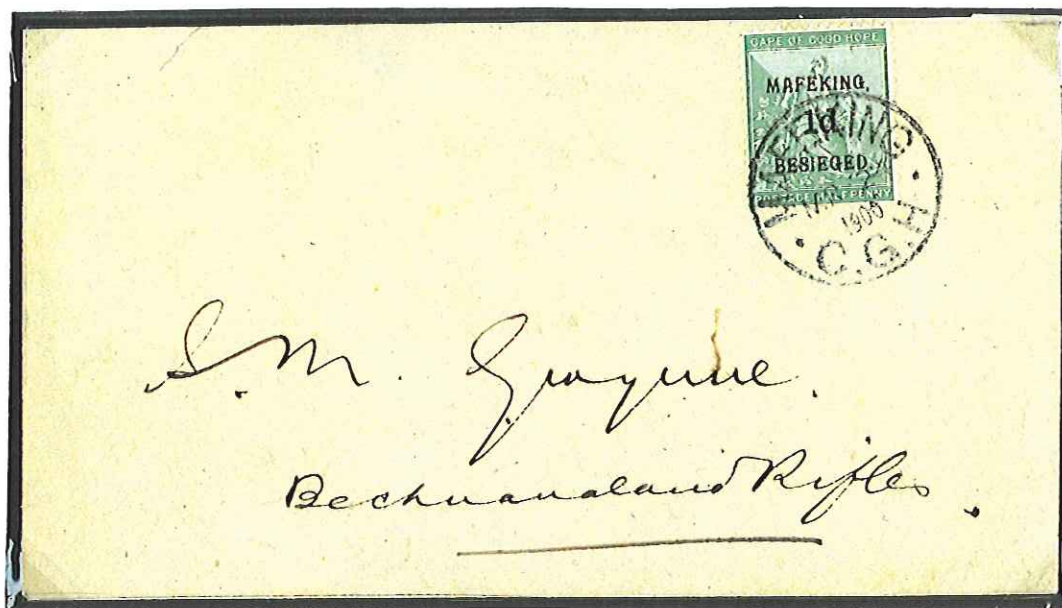 CAPE OF GOOD HOPE
MAFEKING,
1d.
BESIEGED.
POSTAGE HALF PENNY
MAFEKING
1900
C.G.H
S. M.
Bechuanaland Rifles.